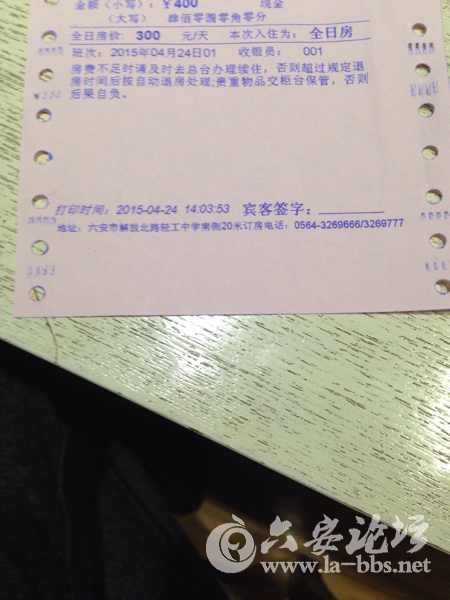 金额（小写）：￥400 现金
（大写） 肆佰零圆零角零分
全日房价: 300 元/天 本次入住为： 全日房
班次：2015年04月24日01 收银员： 001
房费不足时请及时去总台办理续住，否则超过规定退
房时间后按自动退房处理;贵重物品交柜台保管，否则
后果自负。
打印时间：2015-04-24 14:03:53 宾客签字：
地址：六安市解放北路轻工中学南侧20米订房电话：0564-3269666/3269777
六安论坛
www.la-bbs.net